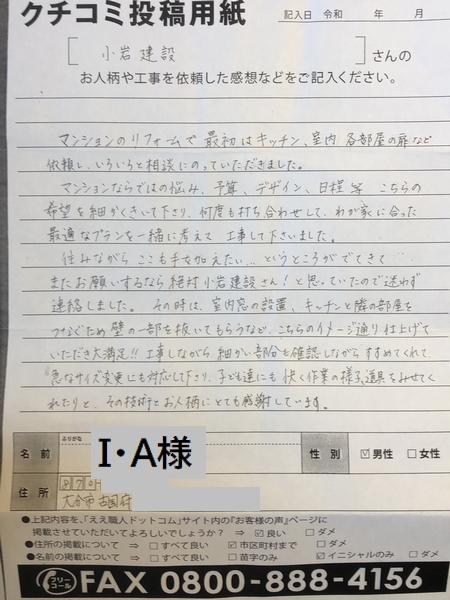 クチコミ投稿用紙
記入日 令和 年 月
[小岩建設]さんの
お人柄や工事を依頼した感想などをご記入ください。
マンションのリフォームで最初はキッチン、室内各部屋の扉など
依頼し、いろいろと相談にのっていただきました。
マンションならではの悩み、予算、デザイン、日程等 こちらの
希望を細かくきいて下さり、何度も打ち合わせして、わが家に合った
最適なプランを一緒に考えて工事して下さいました。
住みながらここも手を加えたい…というところがでてきて…
またお願いするなら絶対小岩建設さん!と思っていたので迷わず
連絡しました。その時は、室内窓の設置、キッチンと隣の部屋を
つなぐため壁の一部を抜いてもらうなど、こちらのイメージ通り仕上げて
いただき大満足!!工事しながら細かい部分も確認しながらすすめてくれて、
急なサイズ変更にも対応して下さり、子ども達にも快く作業の様子、道具をみせてく
れたりと、その技術とお人柄にとても感謝しています。
ふりがな
名前 I・A様 性別 ☑男性 □女性
住所
大分市古国府
●上記内容を、「ええ職人ドットコム」サイト内の『お客様の声』ページに
掲載させていただいてよろしいでしょうか? ⇒ ☑良い □ダメ
●住所の掲載について ⇒ □すべて良い ☑市区町村まで □ダメ
●名前の掲載について ⇒ □すべて良い □苗字のみ ☑イニシャルのみ □ダメ
フリーコール FAX 0800-888-4156